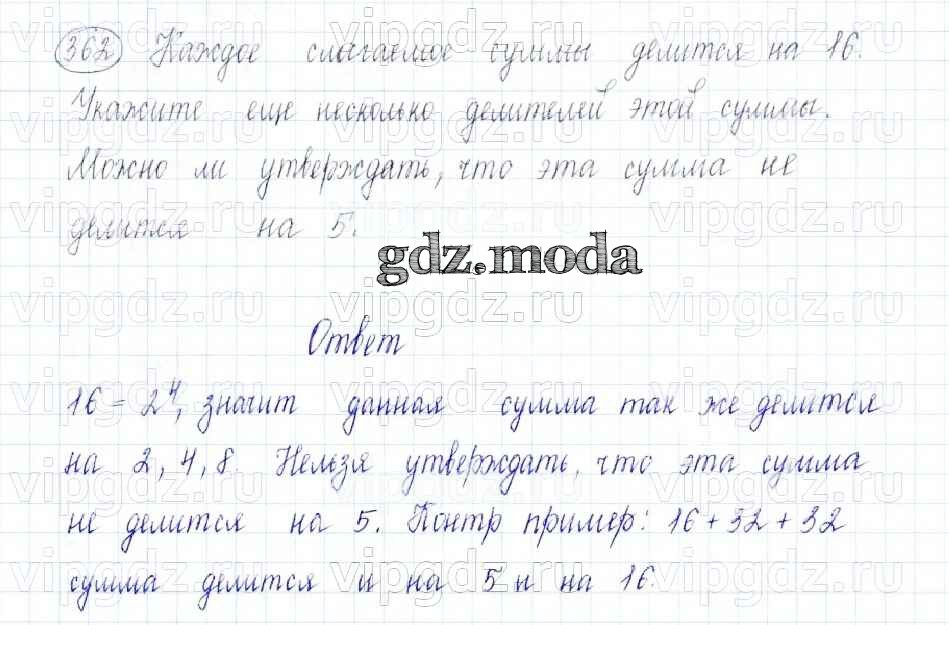 362 Каждое слагаемое суммы делится на 16.
Укажите еще несколько делителей этой суммы.
Можно ли утверждать, что эта сумма не
делится на 5.
gdz.moda
Ответ
16 = 2⁴, значит данная сумма так же делится
на 2, 4, 8. Нельзя утверждать, что эта сумма
не делится на 5. Контр пример: 16 + 32 + 32
сумма делится и на 5 и на 16.
vipgdz.ru